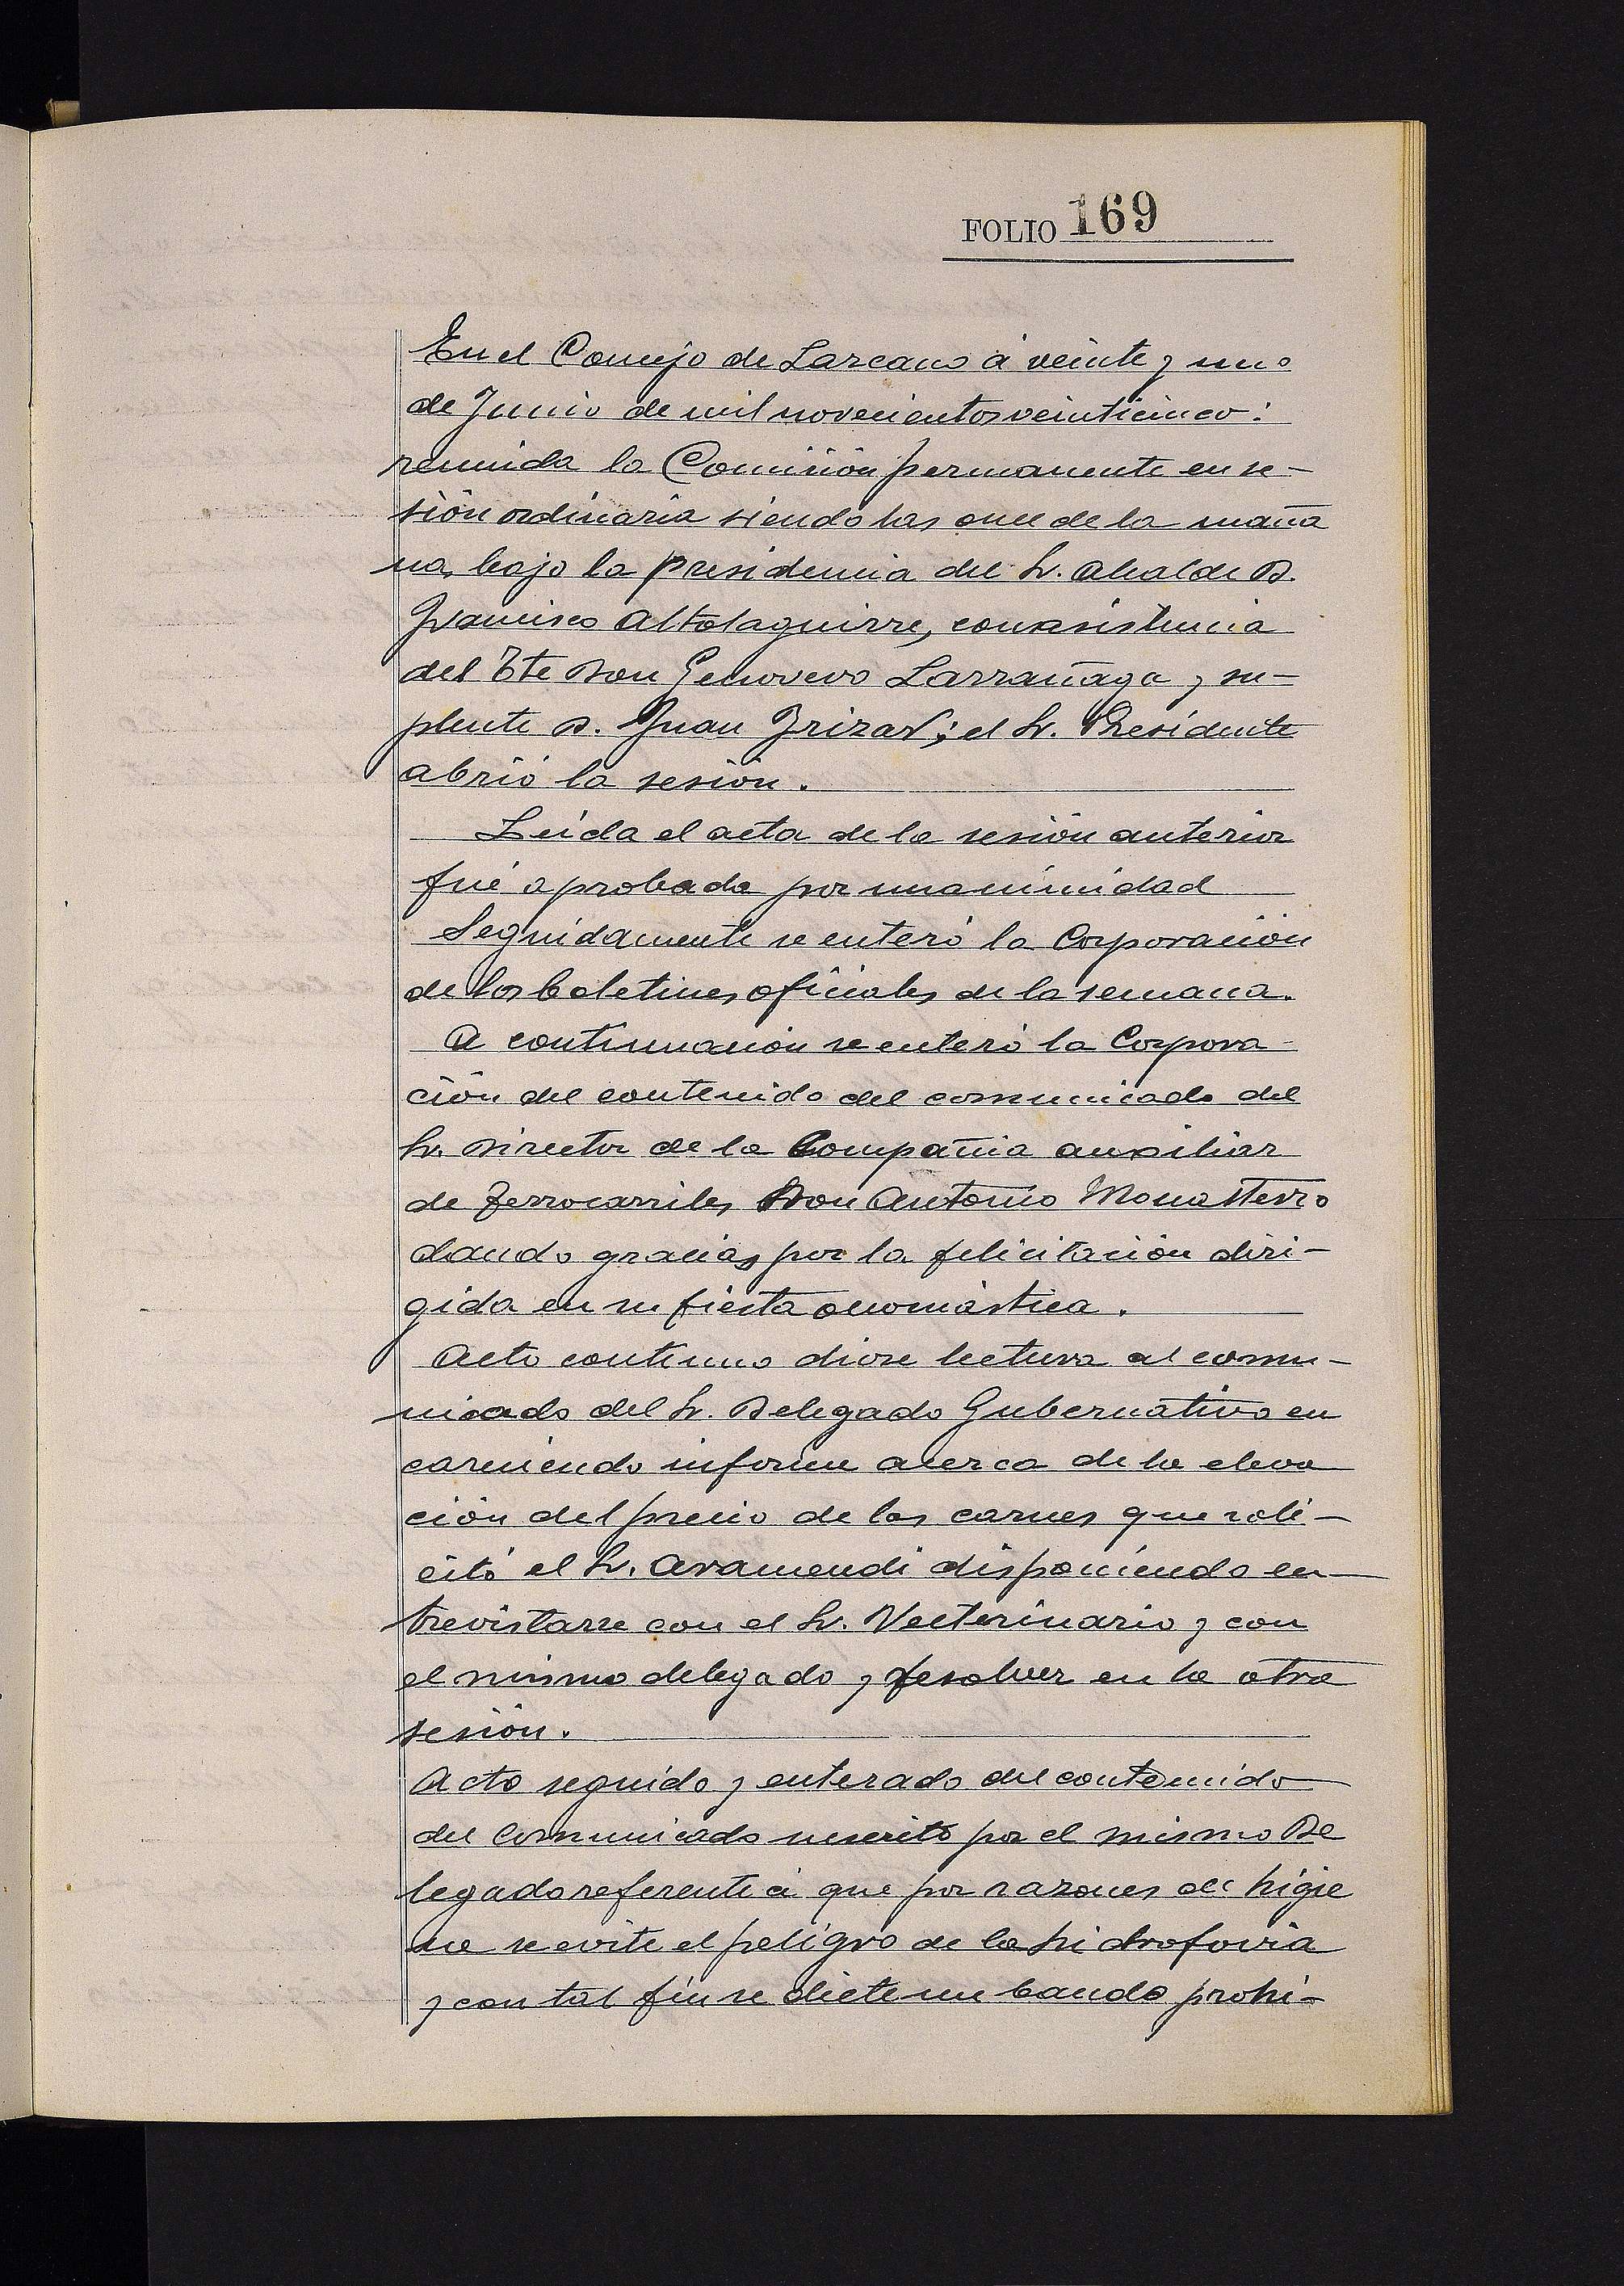 FOLIO 169
En el Concejo de Lazcano á veinte y uno
de Junio de mil novecientos veinticinco:
reunida la Comisión permanente en se-
sión ordinaria siendo las once de la maña
na, bajo la presidencia del Sr. Alcalde D.
Francisco Altolaguirre, con asistencia
del Tte Don Genovevo Larrañaga y su-
plente D. Juan Irizar; el Sr. Presidente
abrió la sesión.
Leida el acta de la sesión anterior
fué aprobada por unanimidad
Seguidamente se enteró la Corporación
de los boletines oficiales de la semana.
A continuación se enteró la Corpora-
ción del contenido del comunicado del
Sr. Director de la Compañia auxiliar
de Ferrocarriles Don Antonio Monasterio
dando gracias por la felicitación diri-
gida en su fiesta onomástica.
Acto continuo diose lectura al comu-
nicado del Sr. Delegado Gubernativo en
careciendo informe acerca de la eleva
ción del precio de las carnes que soli-
citó el Sr. Aramendi disponiendo en-
trevistarse con el Sr. Vecterinario y con
el mismo delegado y resolver en la otra
sesión.
Acto seguido y enterado del contenido
del comunicado suscrito por el mismo De
legado referente á que por razones de higie
ne se evite el peligro de la hidrofovia
y con tal fin se dicte un bando prohi-